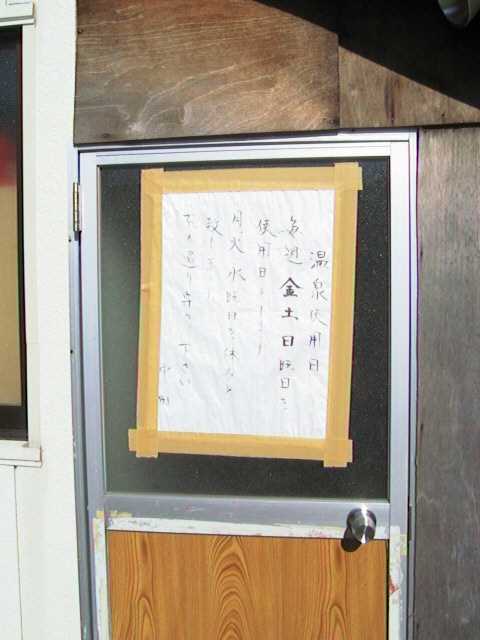 温泉使用日
毎週金土日曜日を
使用日とします
月火水曜日を休みと
致します
下さい